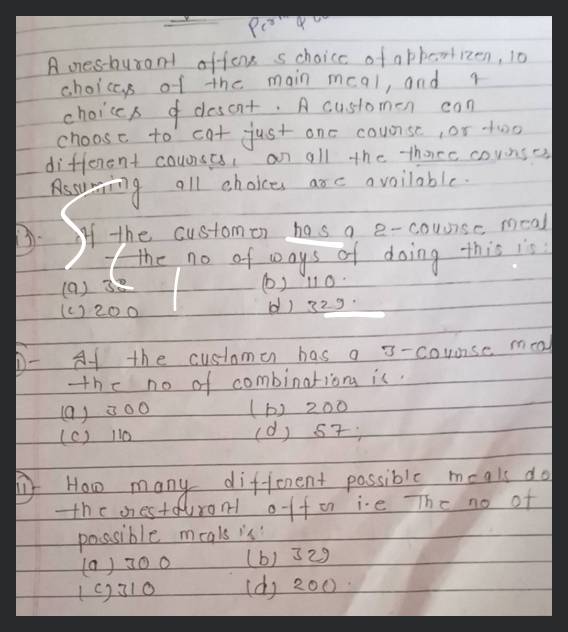 A resturant offers 5 choice of appertizen, 10
choices of the main meal, and 4
choices of desert. A customer can
choose to eat just one course, or two
different courses, or all the three courses
Assuming all choices are available.
i). If the customer has a 2-course meal
the no of ways of doing this is:
(a) 38 (b) 110.
(c) 200 (d) 329.
i)- If the customer has a 3-course meal
the no of combinations is.
(a) 300 (b) 200
(c) 110 (d) 57;
ii) How many different possible meals do
the resturant offer i.e The no of
possible meals is:
(a) 300 (b) 329
(c) 310 (d) 200.